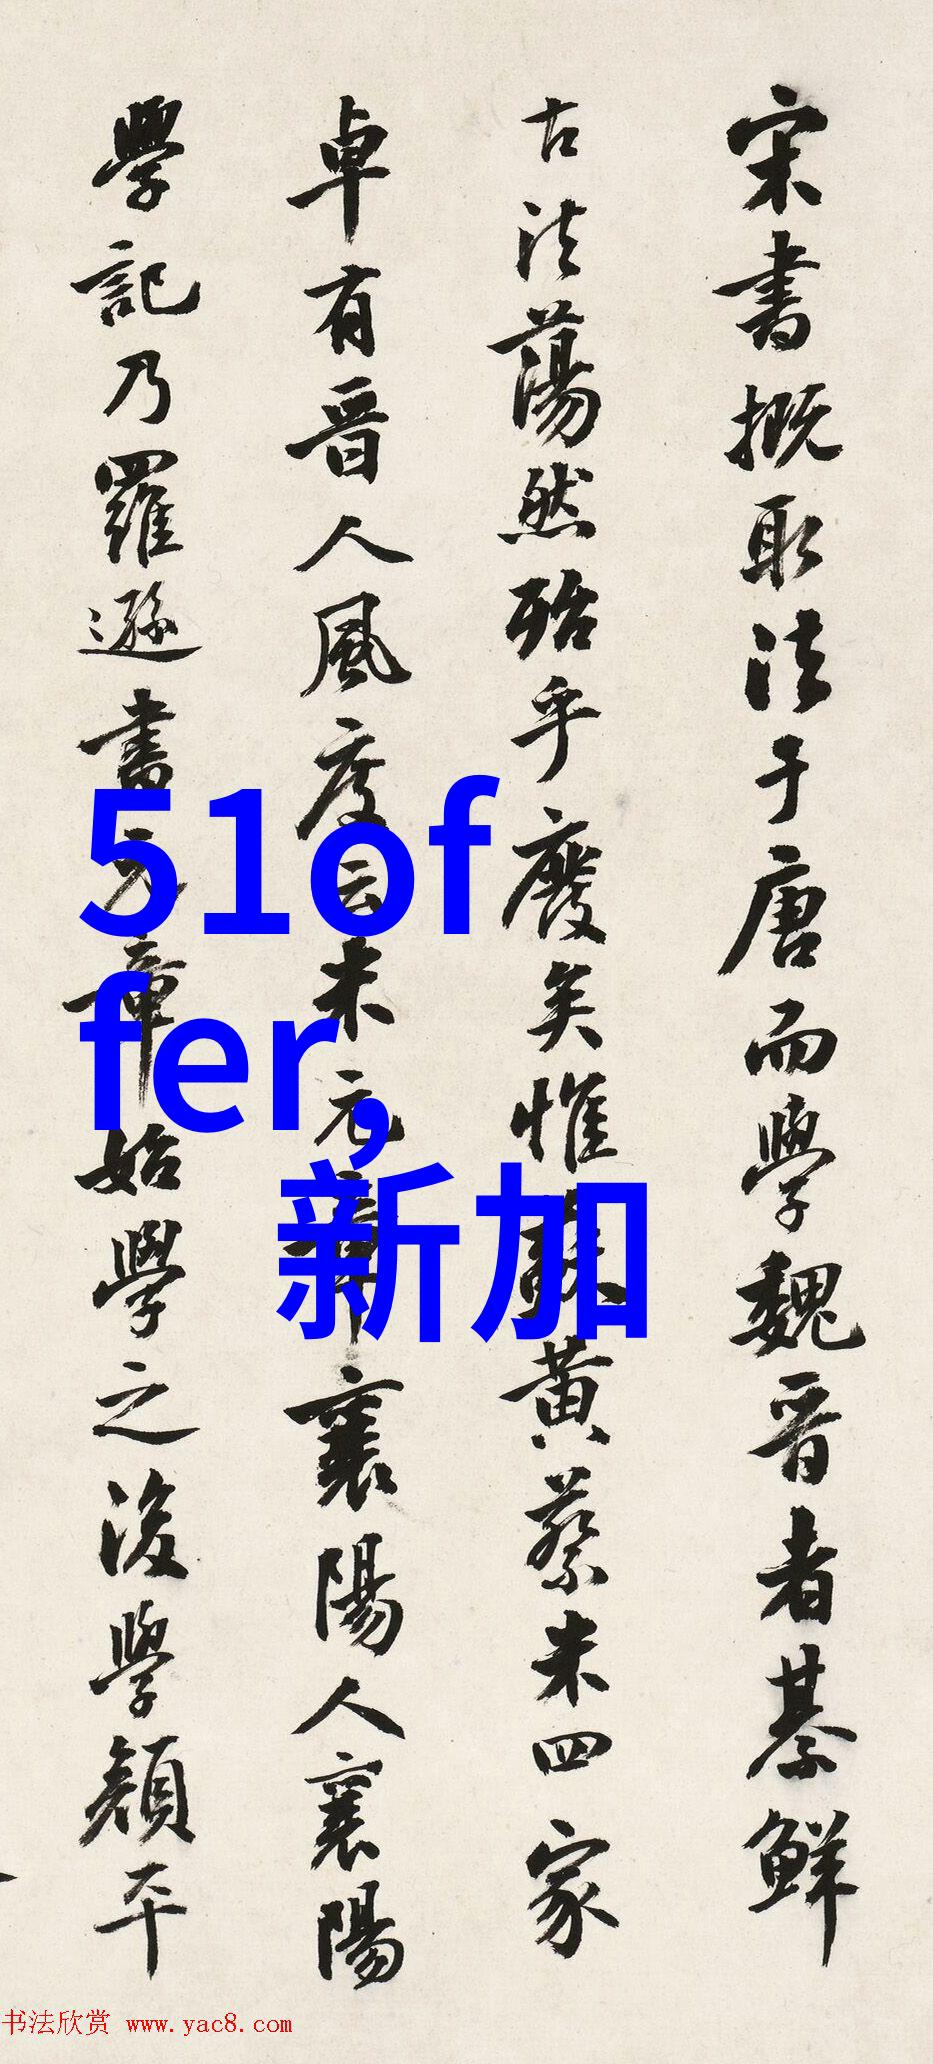 宋書概取法于唐而學魏晉者綦鮮
古法蕩然殆乎廢矣惟蘇黃蔡米四家
卓有晉人風度云米元章襄陽人襄陽
學記乃羅遜書元章始學之後學顏平
51of
fer,
新加
书法欣赏 www.yac8.com